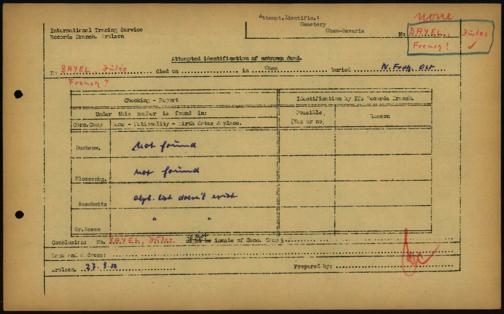 Attempt.Identific.:
none
International Tracing Service
Cemetery
BAYEL, Jules
Records Branch. Arolsen
Cham-Bavaria
No.
French!
Attempted identification of unknown dead.
BAYEL Jules died on in Cham buried N. Frdh. Ost
French?
Checking - Report
Identification by ITS Records Branch.
Under this number is found in:
Possible
Reason
Conc.Camp
Name - Nationality - Birth dates & place.
(Yes or no)
Dachau.
Not found
Flossenbg.
not found
Auschwitz
alph. list doesn't exist
" "
Gr.Rosen
Conclusion: No. BAYEL, Jules inmate of Conc. Camp
Arolsen
Prepared by: